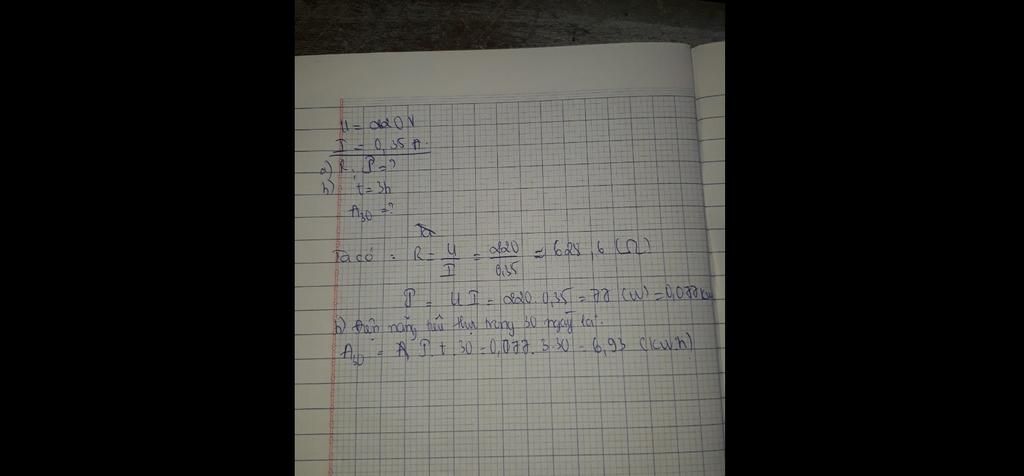 U = 220V
I = 0,35 A.
a) R, P = ?
b) t = 3h
A30 = ?
Ta có : R = U/I = 220/0,35 ≈ 628,6 (Ω)
P = UI = 220. 0,35 = 77 (W) = 0,077 kW
b) Điện năng tiêu thụ trong 30 ngày là:
A30 = P. t. 30 = 0,077. 3. 30 = 6,93 (kW.h)